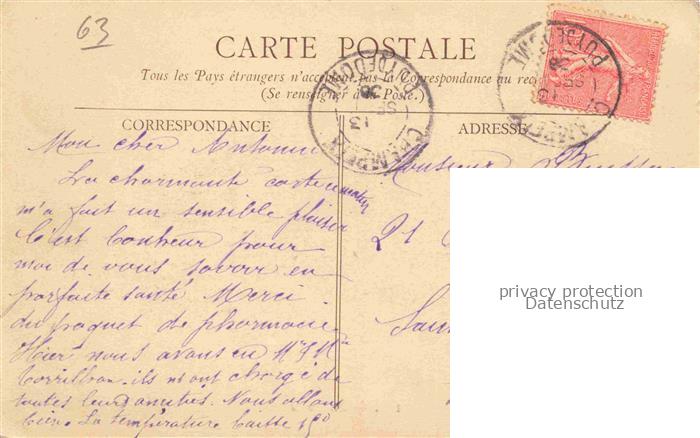 63
CARTE POSTALE
Tous les Pays étrangers n'acceptent pas la Correspondance au rec
(Se renseigner à la Poste.)
CORRESPONDANCE
ADRESSE
Mon cher Antonin
La charmante carte
m'a fait un sensible plaisir
C'est bonheur pour
moi de vous savoir en
parfaite santé Merci
du paquet de pharmacie.
Hier nous avons eu
ils m'ont chargé de
toutes leurs amitiés. Nous allons
bien. La température baisse 15°
Monsieur
21
PUY DE DOME
13
SE
PUY DE DOME
13
SE
privacy protection
Datenschutz